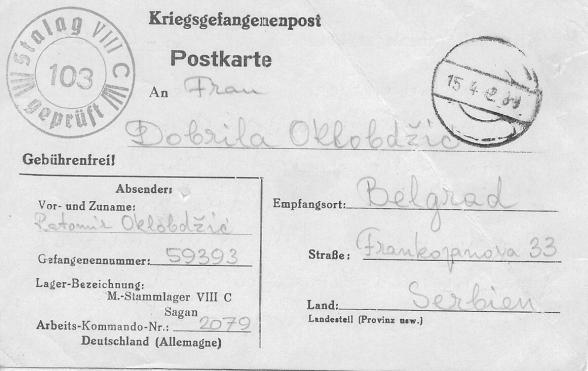 Stalag VIII C
103
geprüft
Kriegsgefangenenpost
Postkarte
An Frau
Dobrila Oklobdžić
15.4.42
Gebührenfrei!
Absender:
Vor- und Zuname:
Ratomir Oklobdžić
Gefangenennummer: 59393
Lager-Bezeichnung:
M.-Stammlager VIII C
Sagan
Arbeits-Kommando-Nr.: 2079
Deutschland (Allemagne)
Empfangsort: Belgrad
Straße: Frankopanova 33
Land: Serbien
Landesteil (Provinz usw.)